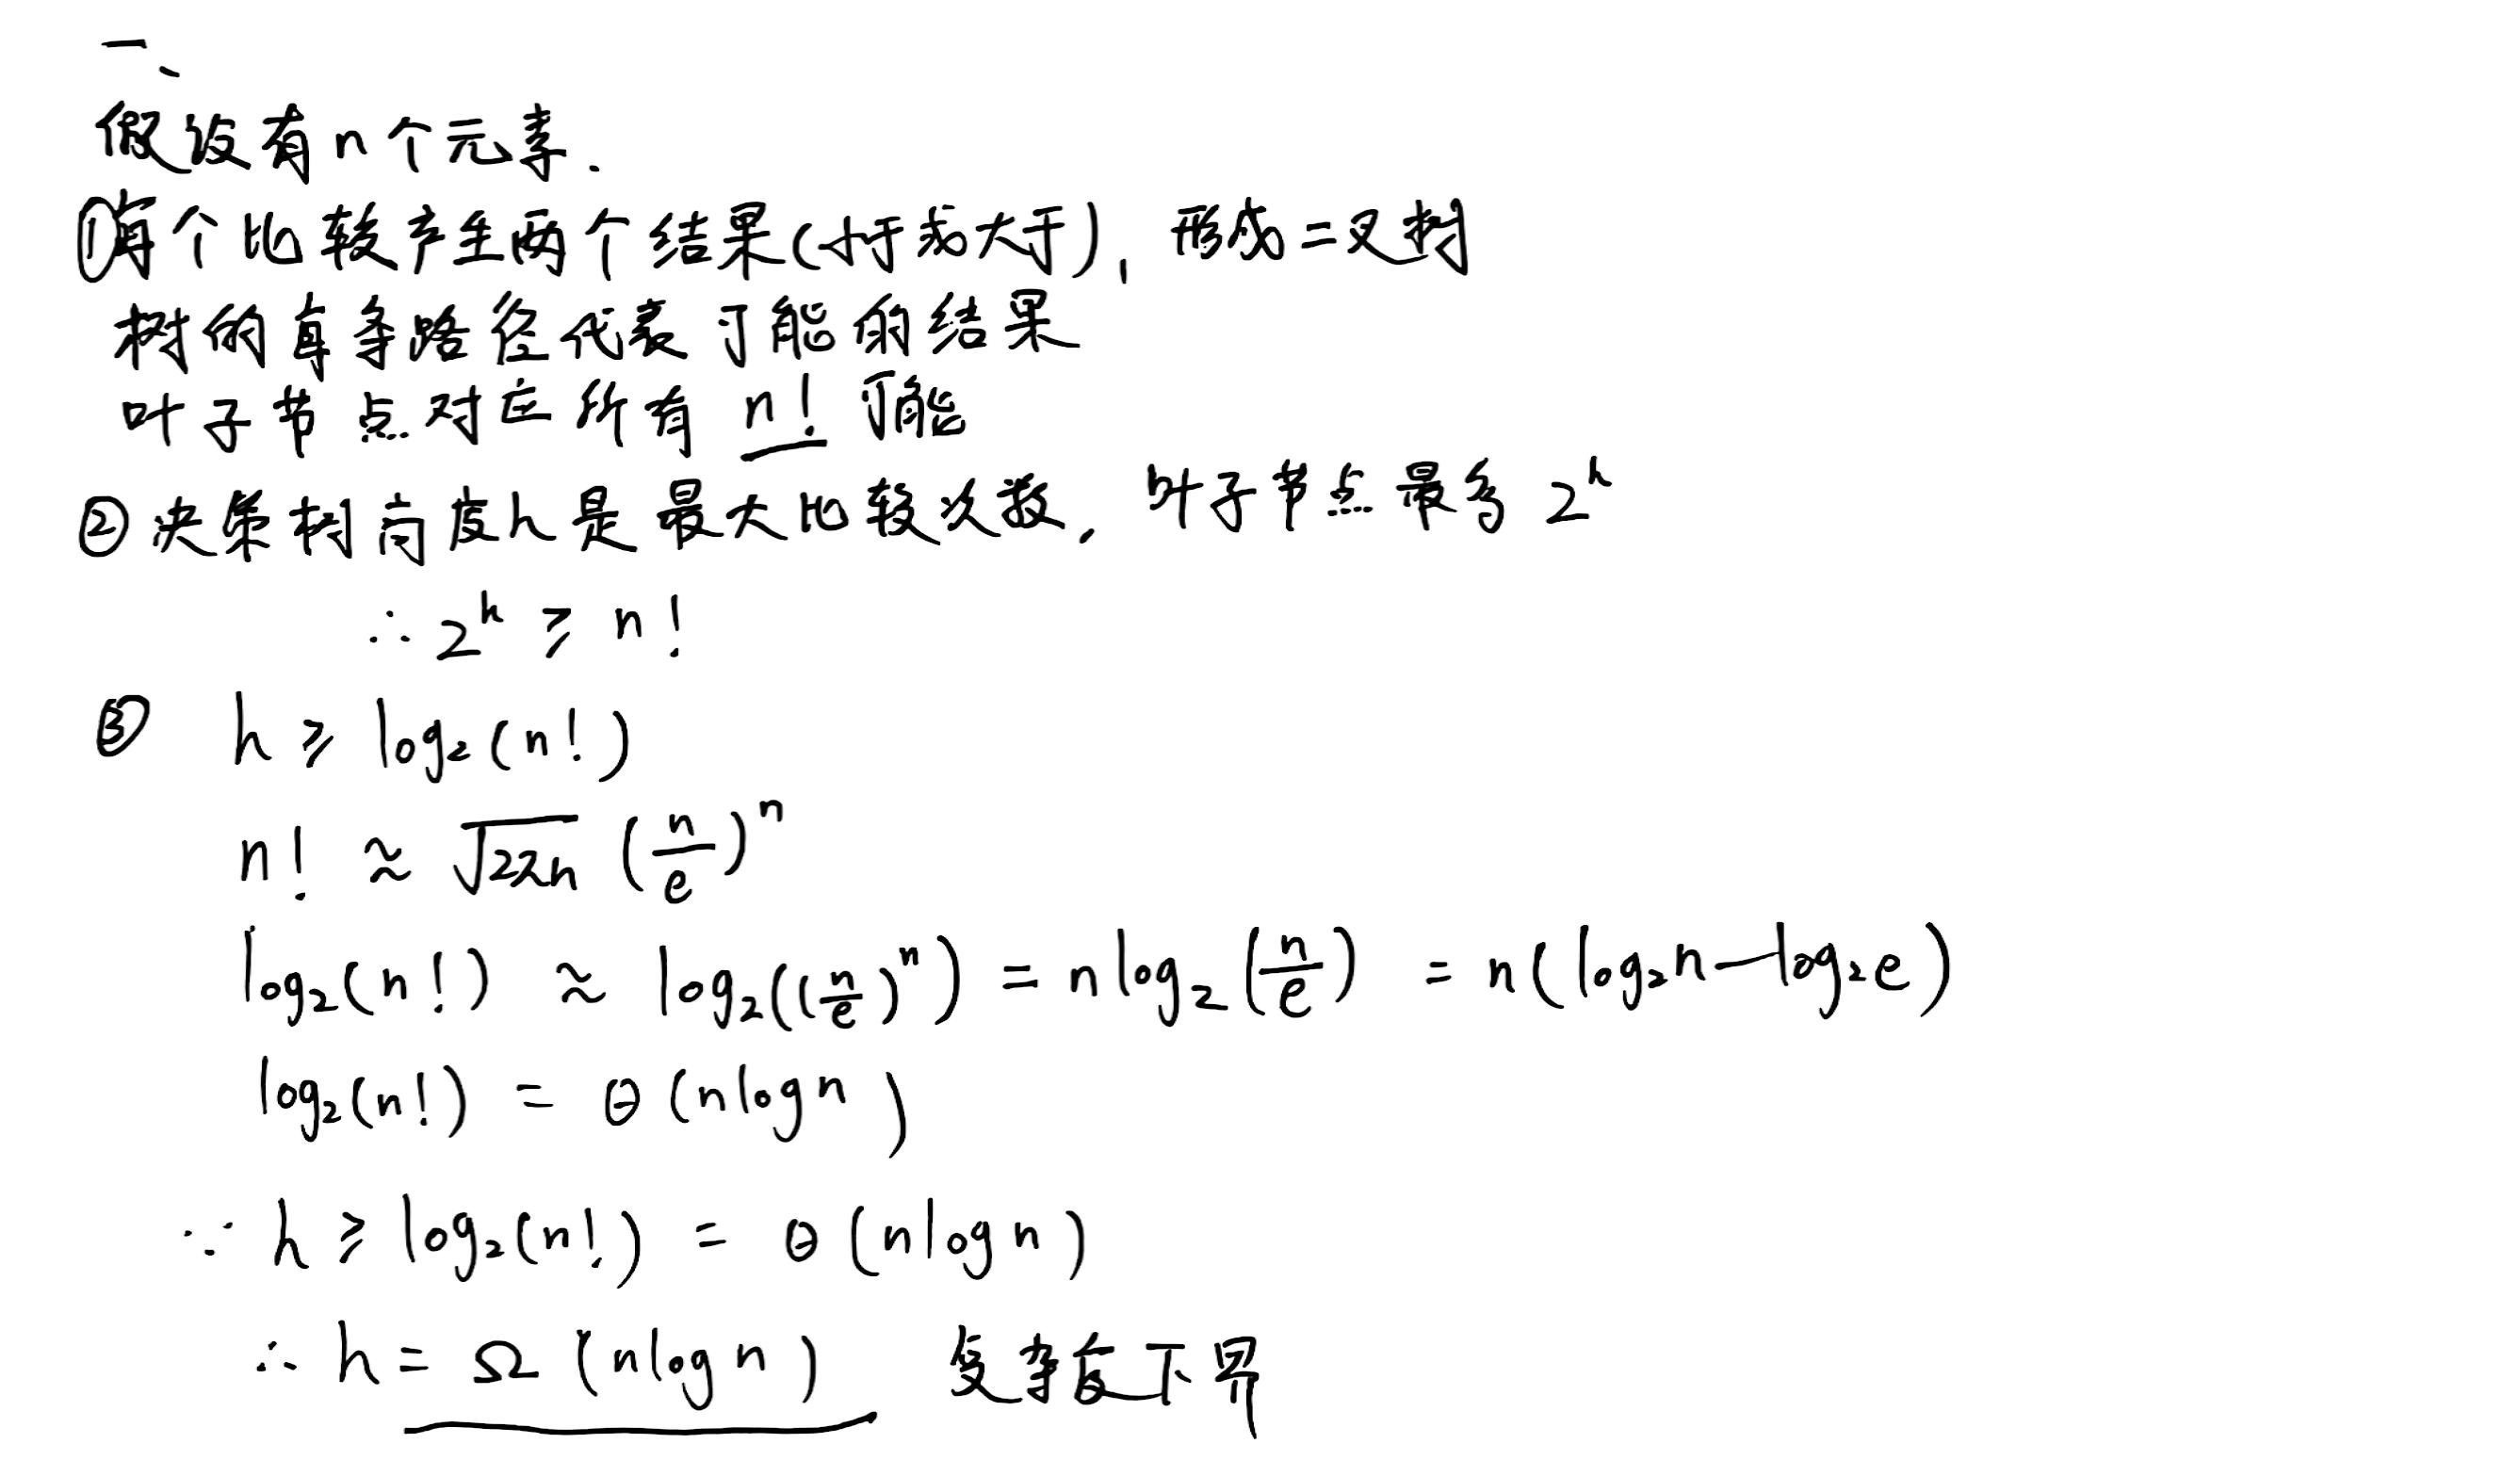 一、
假设有n个元素.
①每个比较产生两个结果(小于或大于),形成二叉树
树的每条路径代表可能的结果
叶子节点对应所有n!可能
②决策树高度h是最大比较次数,叶子节点最多2^h
∴ 2^h ≥ n!
③ h ≥ log₂(n!)
n! ≈ √(2πn) (n/e)^n
log₂(n!) ≈ log₂((n/e)^n) = n log₂(n/e) = n(log₂n - log₂e)
log₂(n!) = Θ(nlogn)
∵ h ≥ log₂(n!) = Θ(nlogn)
∴ h = Ω(nlogn) 复杂度下界